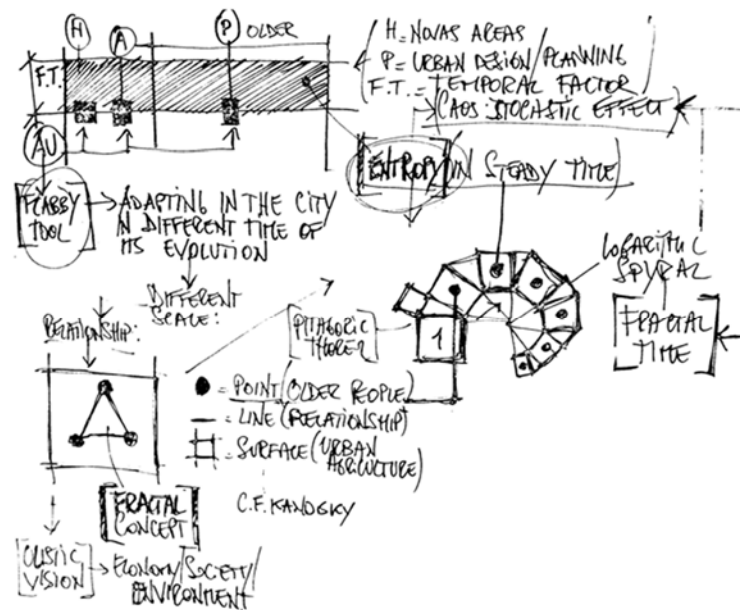 H A P OLDER
F.T.
AU
H = NOVAS AREAS
P = URBAN DESIGN/PLANNING
F.T. = TEMPORAL FACTOR
CAOS STOCHASTIC EFFECT
[ENTROPY] (IN STEADY TIME)
[FLABBY
TOOL]
ADAPTING IN THE CITY
IN DIFFERENT TIME OF
ITS EVOLUTION
DIFFERENT
SCALE:
RELATIONSHIP:
[PITAGORIC
1
LOGARITMIC
SPYRAL
[FRACTAL
TIME]
= POINT (OLDER PEOPLE)
= LINE (RELATIONSHIP)
= SURFACE (URBAN
AGRICULTURE)
C.F. KANDSKY
[FRACTAL
CONCEPT]
[OLISTIC
VISION]
ECONOMY/SOCIETY/
ENVIRONMENT